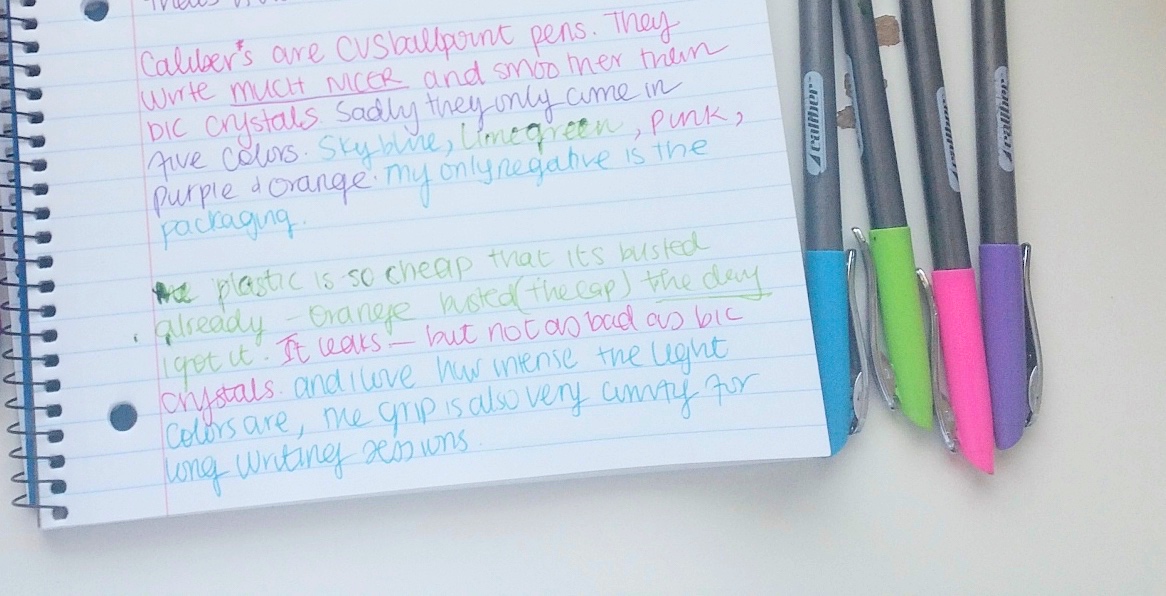 Caliber's are CVS ballpoint pens. They
write MUCH NICER and smoother than
bic crystals. Sadly they only come in
five colors. Sky blue, lime green, pink,
purple & orange. my only negative is the
packaging.
The plastic is so cheap that its busted
already - orange busted (the cap) the day
i got it. It leaks - but not as bad as bic
crystals. and i love how intense the light
colors are, the grip is also very comfy for
long writing sessions.
caliber
caliber
caliber